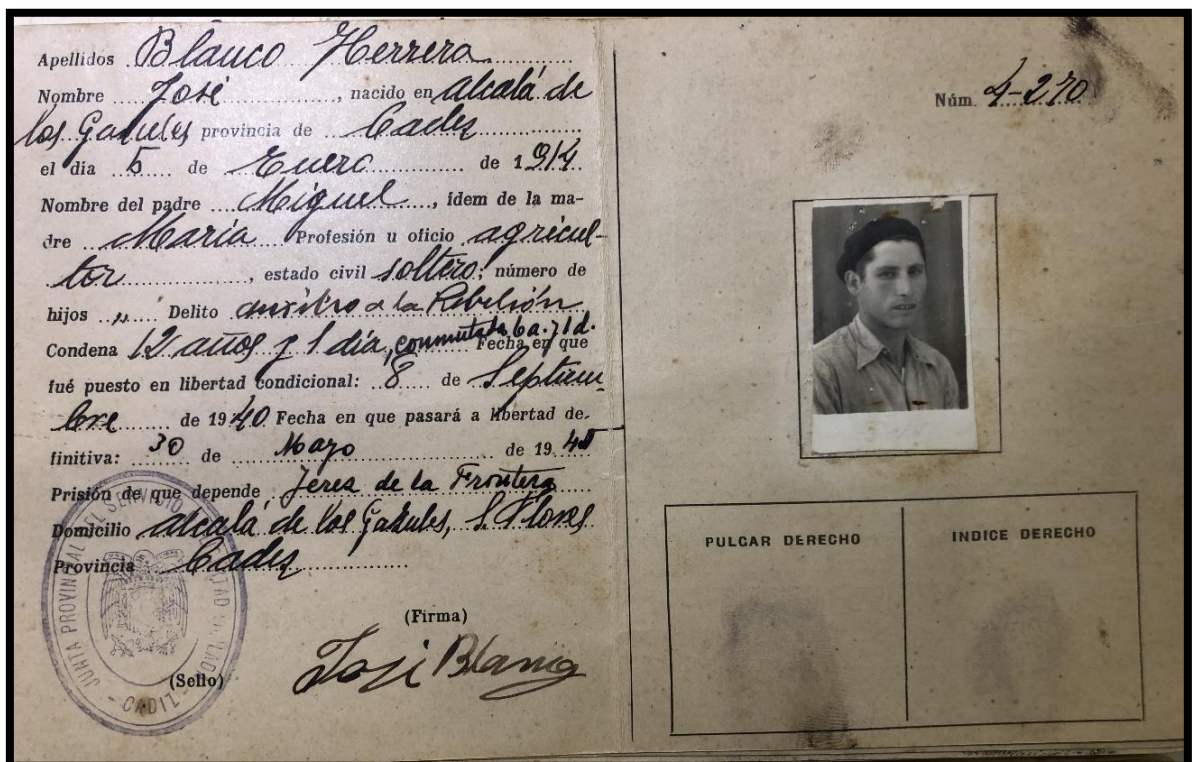 Apellidos Blanco Herrera
Nombre José, nacido en Alcalá de
los Gazules provincia de Cadiz
el dia 5 de Enero de 1914
Nombre del padre Miguel, idem de la ma-
dre Maria Profesión u oficio agricul-
tor, estado civil soltero; número de
hijos " Delito auxilio a la Rebelión
Condena 12 años y 1 día, conmutada 6 a. y 1 d. Fecha en que
fué puesto en libertad condicional: 8 de Septiem
bre de 1940 Fecha en que pasará a libertad de-
finitiva: 30 de Mayo de 19
Prisión de que depende Jerez de la Frontera
Domicilio Alcalá de los Gazules, S. Flores
Provincia Cadiz
(Firma)
José Blanco
(Sello)
JUNTA PROVINCIAL DEL SERVICIO DE LIBERTAD VIGILADA
- CADIZ -
Núm. 4-270
PULGAR DERECHO
INDICE DERECHO